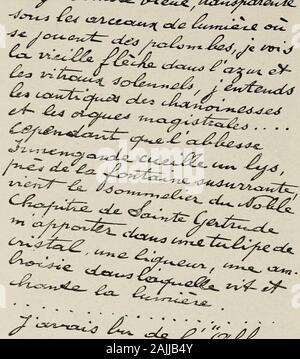 bleue, transparente
sous les arceaux de lumière où
se jouent des palombes, je vois
la vieille flèche dans l'azur et
les vitraux solennels, j'entends
les cantiques des chanoinesses
et les orgues magistrales....
Cependant que l'abbesse
Ermengarde cueille un lys,
près de la fontaine susurrante,
vient le sommelier du Noble
Chapitre de Sainte Gertrude
m'apporter dans une tulipe de
cristal, une liqueur, une am-
broisie dans laquelle vit et
chante la lumière.
J'avais bu de l'
alamy
Image ID: 2AJJB4Y
www.alamy.com